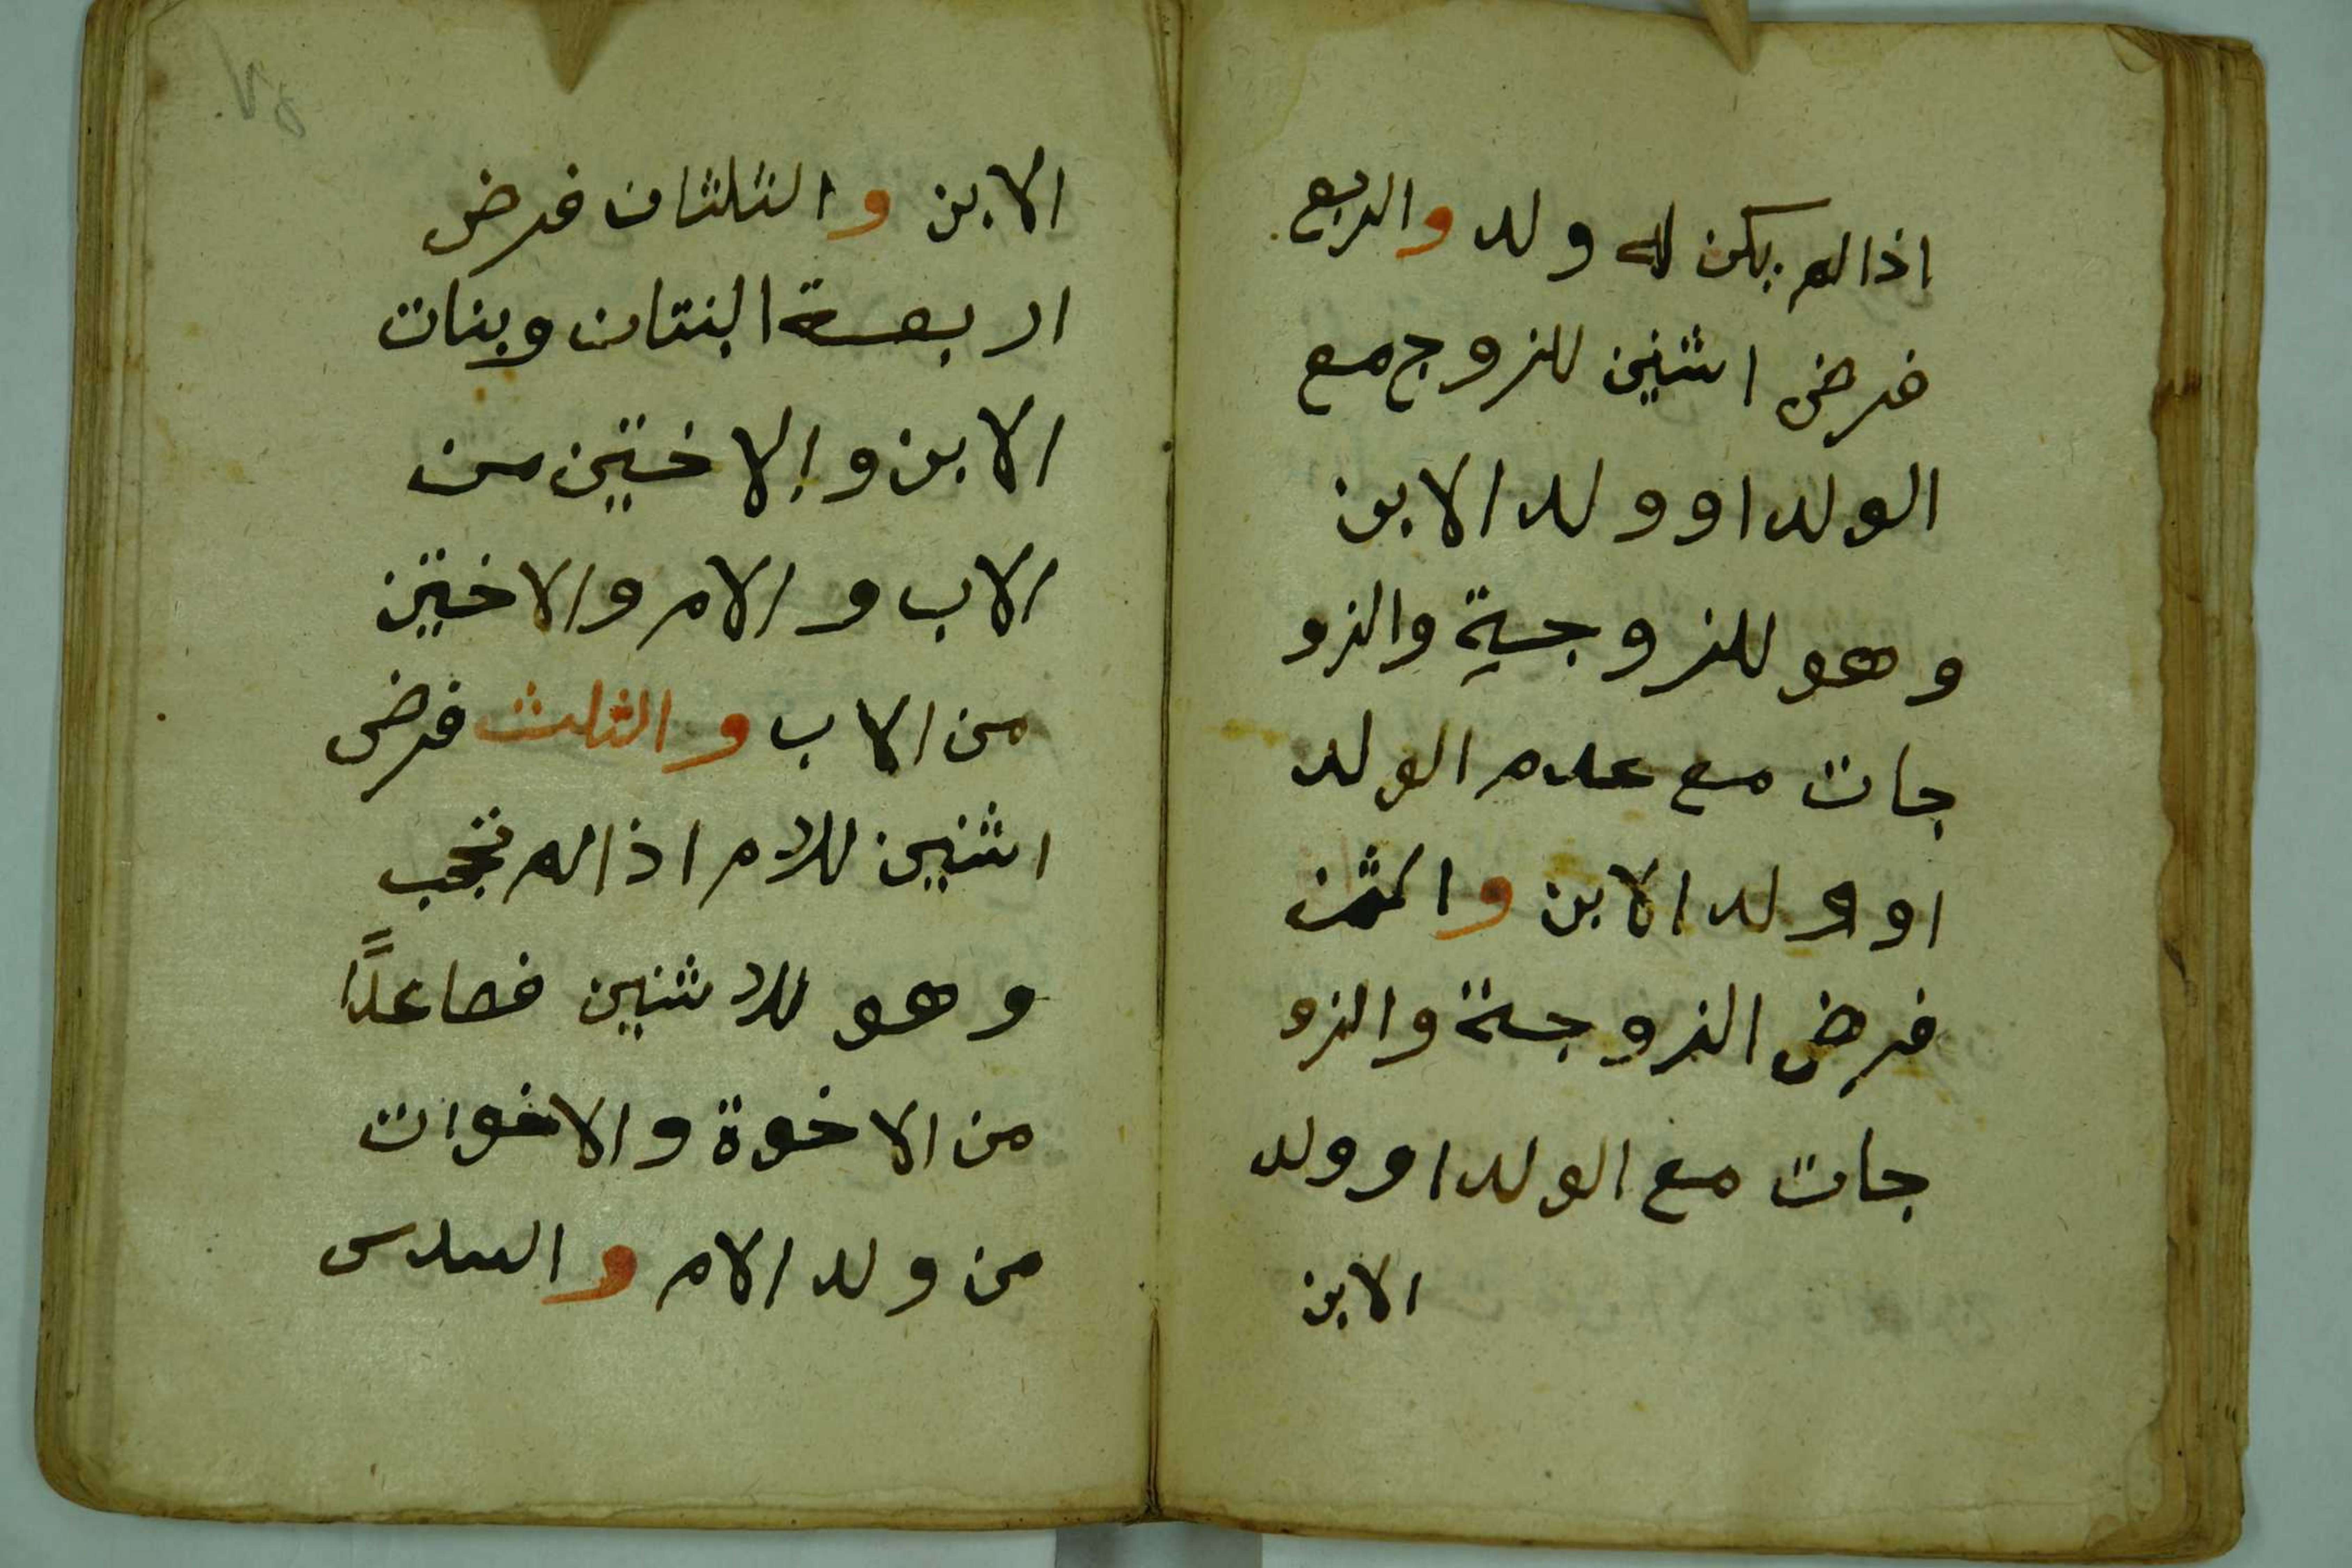 اذا لم يكن له ولد والربع
فرض اثنين للزوج مع
الولد او ولد الابن
وهو للزوجية والزو
جات مع عدم الولد
او ولد الابن والثمن
فرض الزوجة والزو
جات مع الولد او ولد
الابن
الابن والثلثان فرض
اربعة البنتان وبنات
الابن والاختين من
الاب والام والاختين
من الاب والثلث فرض
اثنين للام اذا لم تحجب
وهو للاثنين فصاعدًا
من الاخوة والاخوات
من ولد الام والسدس